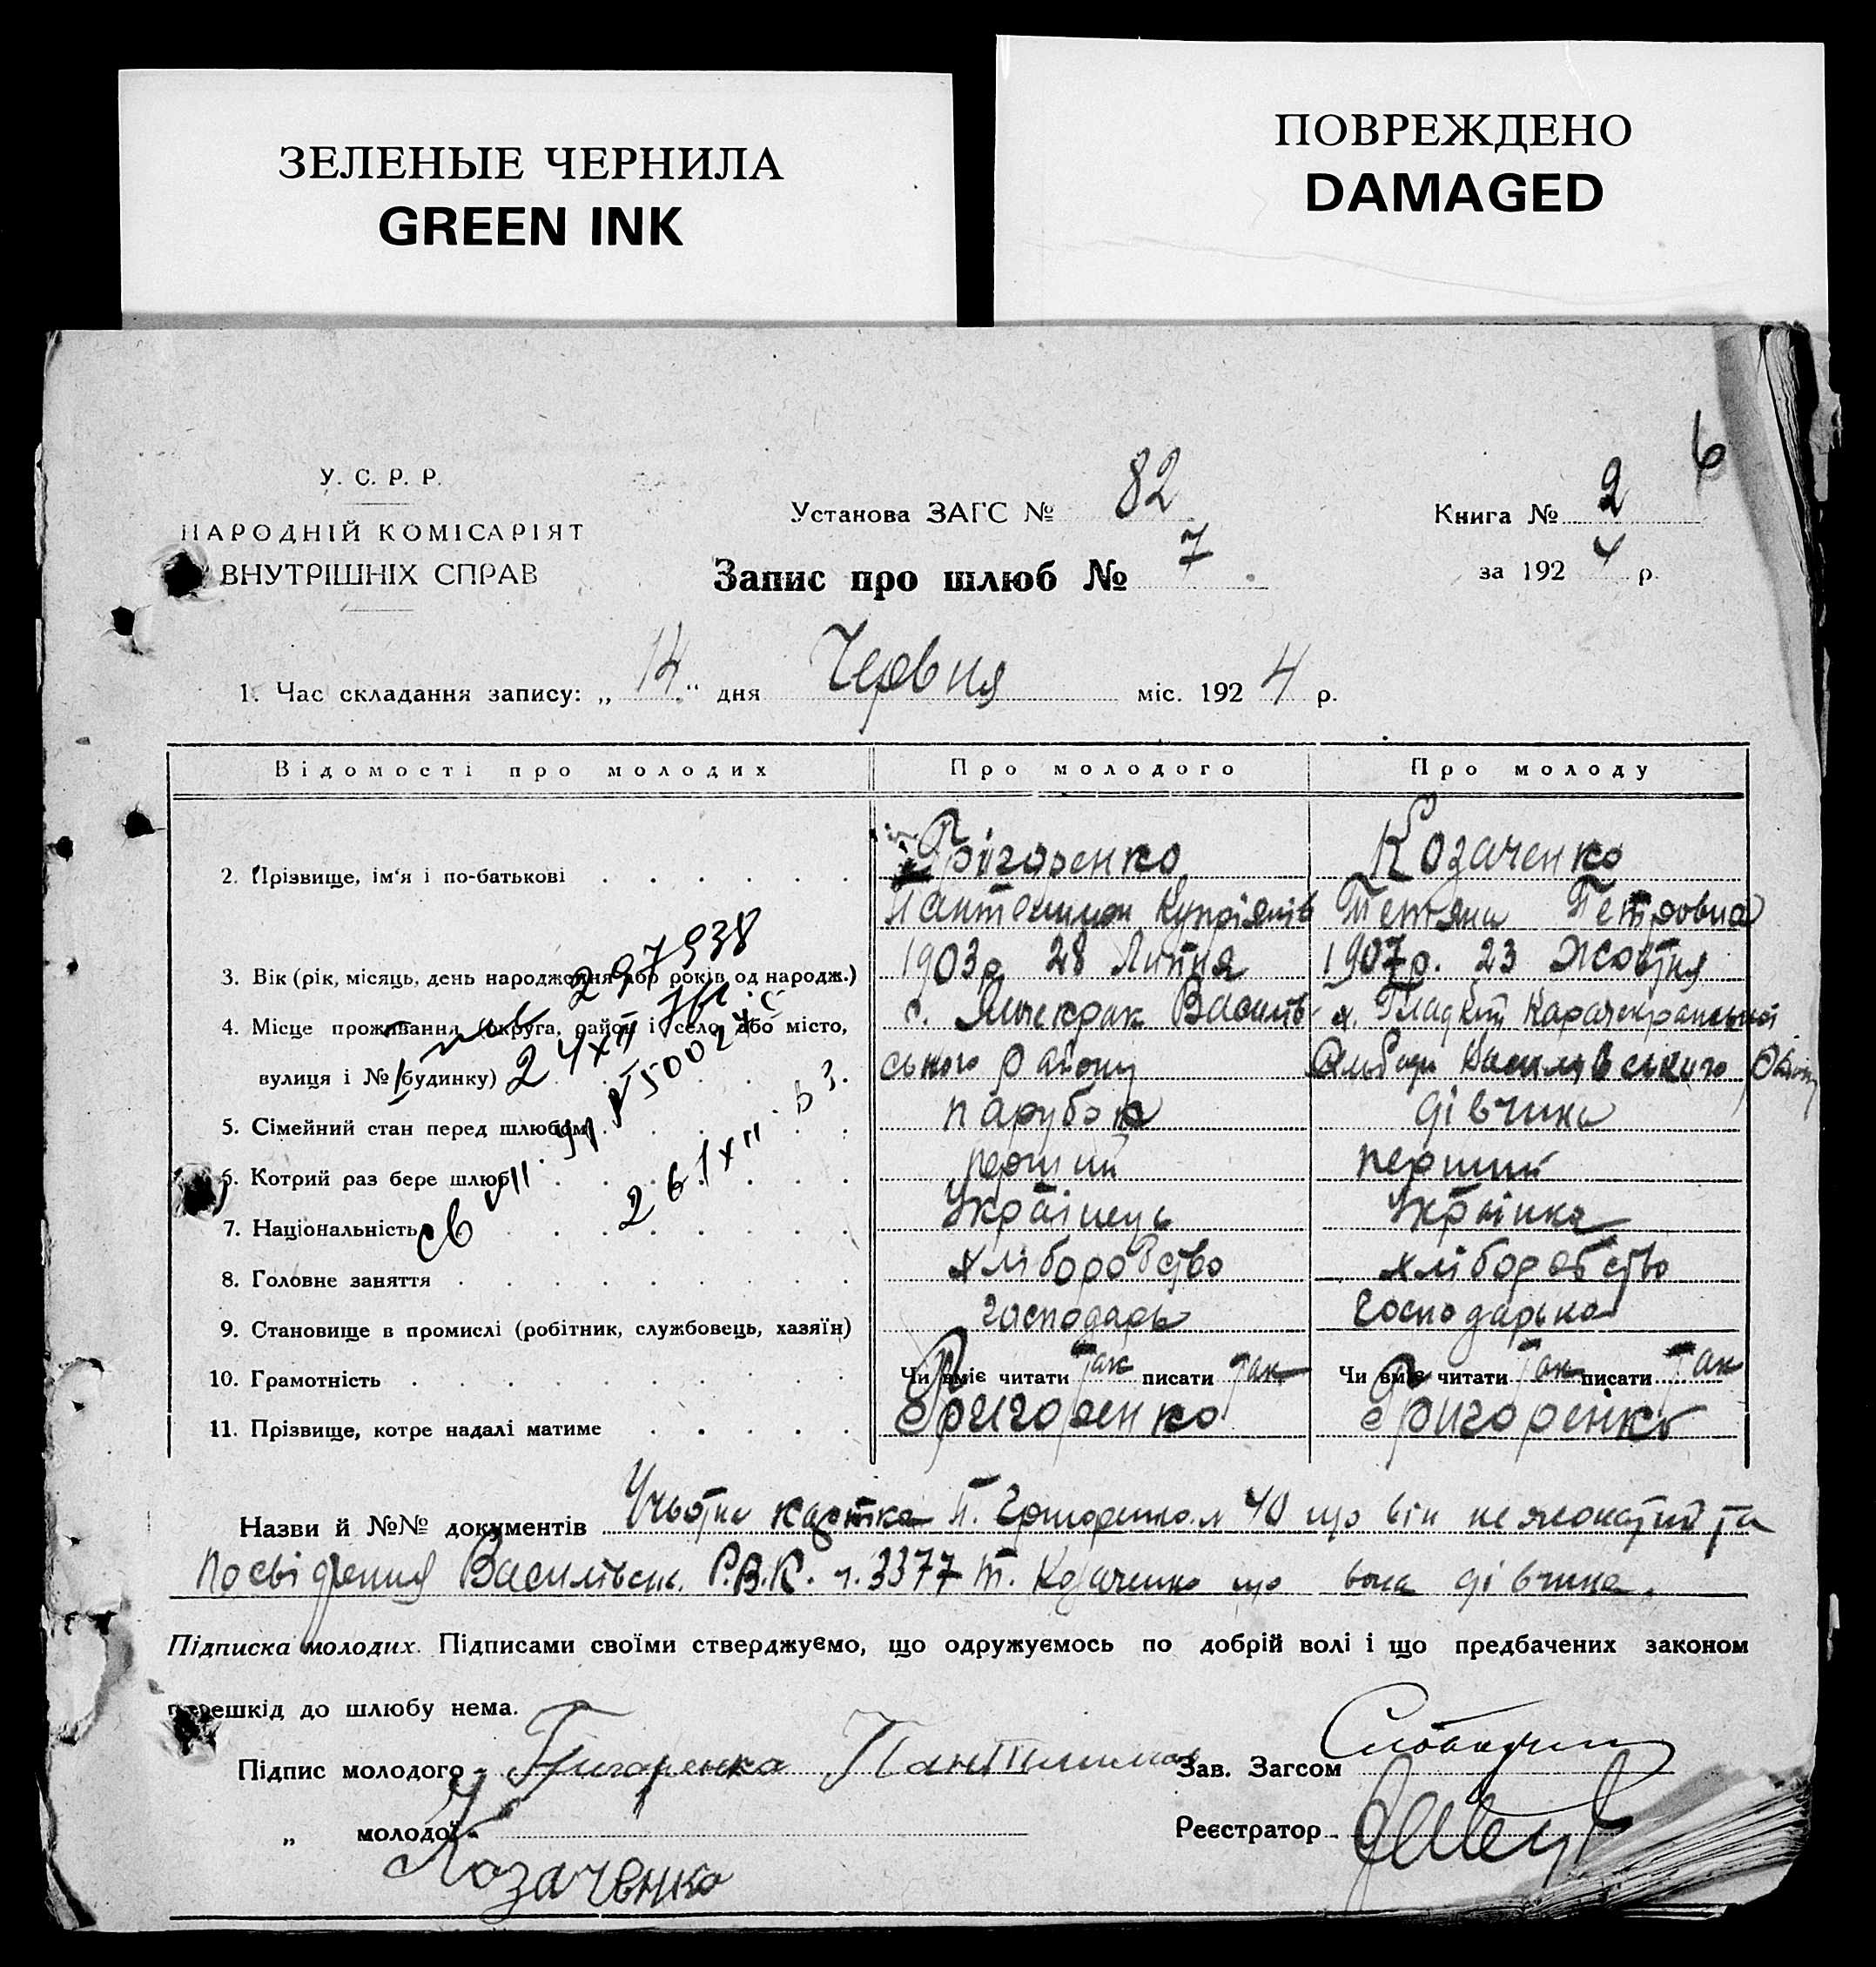 ЗЕЛЕНЫЕ ЧЕРНИЛА
GREEN INK
ПОВРЕЖДЕНО
DAMAGED
6
У. С. Р. Р.
НАРОДНІЙ КОМІСАРІЯТ
ВНУТРІШНІХ СПРАВ
Установа ЗАГС № 82
Запис про шлюб № 7
Книга № 2
за 1924 р.
1. Час складання запису: „14“ дня Червня міс. 1924 р.
Відомості про молодих Про молодого Про молоду
2. Прізвище, ім‘я і по-батькові Григоренко Козаченко
Пантелимон Купріянів Тетяна Петровна
3. Вік (рік, місяць, день народження або років од народж.) 1903р 28 Липня 1907р. 23 Жовтня
4. Місце проживання (округа, район і село або місто, с. Янчекрак Василів- х. Гладкий Карачекракської
вулиця і № будинку) ського району Василівського
5. Сімейний стан перед шлюбом парубок дівчина
6. Котрий раз бере шлюб перший перший
7. Національність Українець Українка
8. Головне заняття хліборобство хліборобство
9. Становище в промислі (робітник, службовець, хазяїн) господарь господарька
10. Грамотність Чи вміє читати так писати так Чи вміє читати так писати так
11. Прізвище, котре надалі матиме Григоренко Григоренко
297938
Назви й №№ документів Учьотна картка П. Григоренко 40 що він не жонатий та
посвідчення Василівськ. Р.В.К. ч. 3377 Т. Козаченко що вона дівчина.
Підписка молодих. Підписами своїми стверджуємо, що одружуємось по добрій волі і що предбачених законом
перешкід до шлюбу нема.
Підпис молодого Григоренко Зав. Загсом
„ молодої Реєстратор
Козаченко